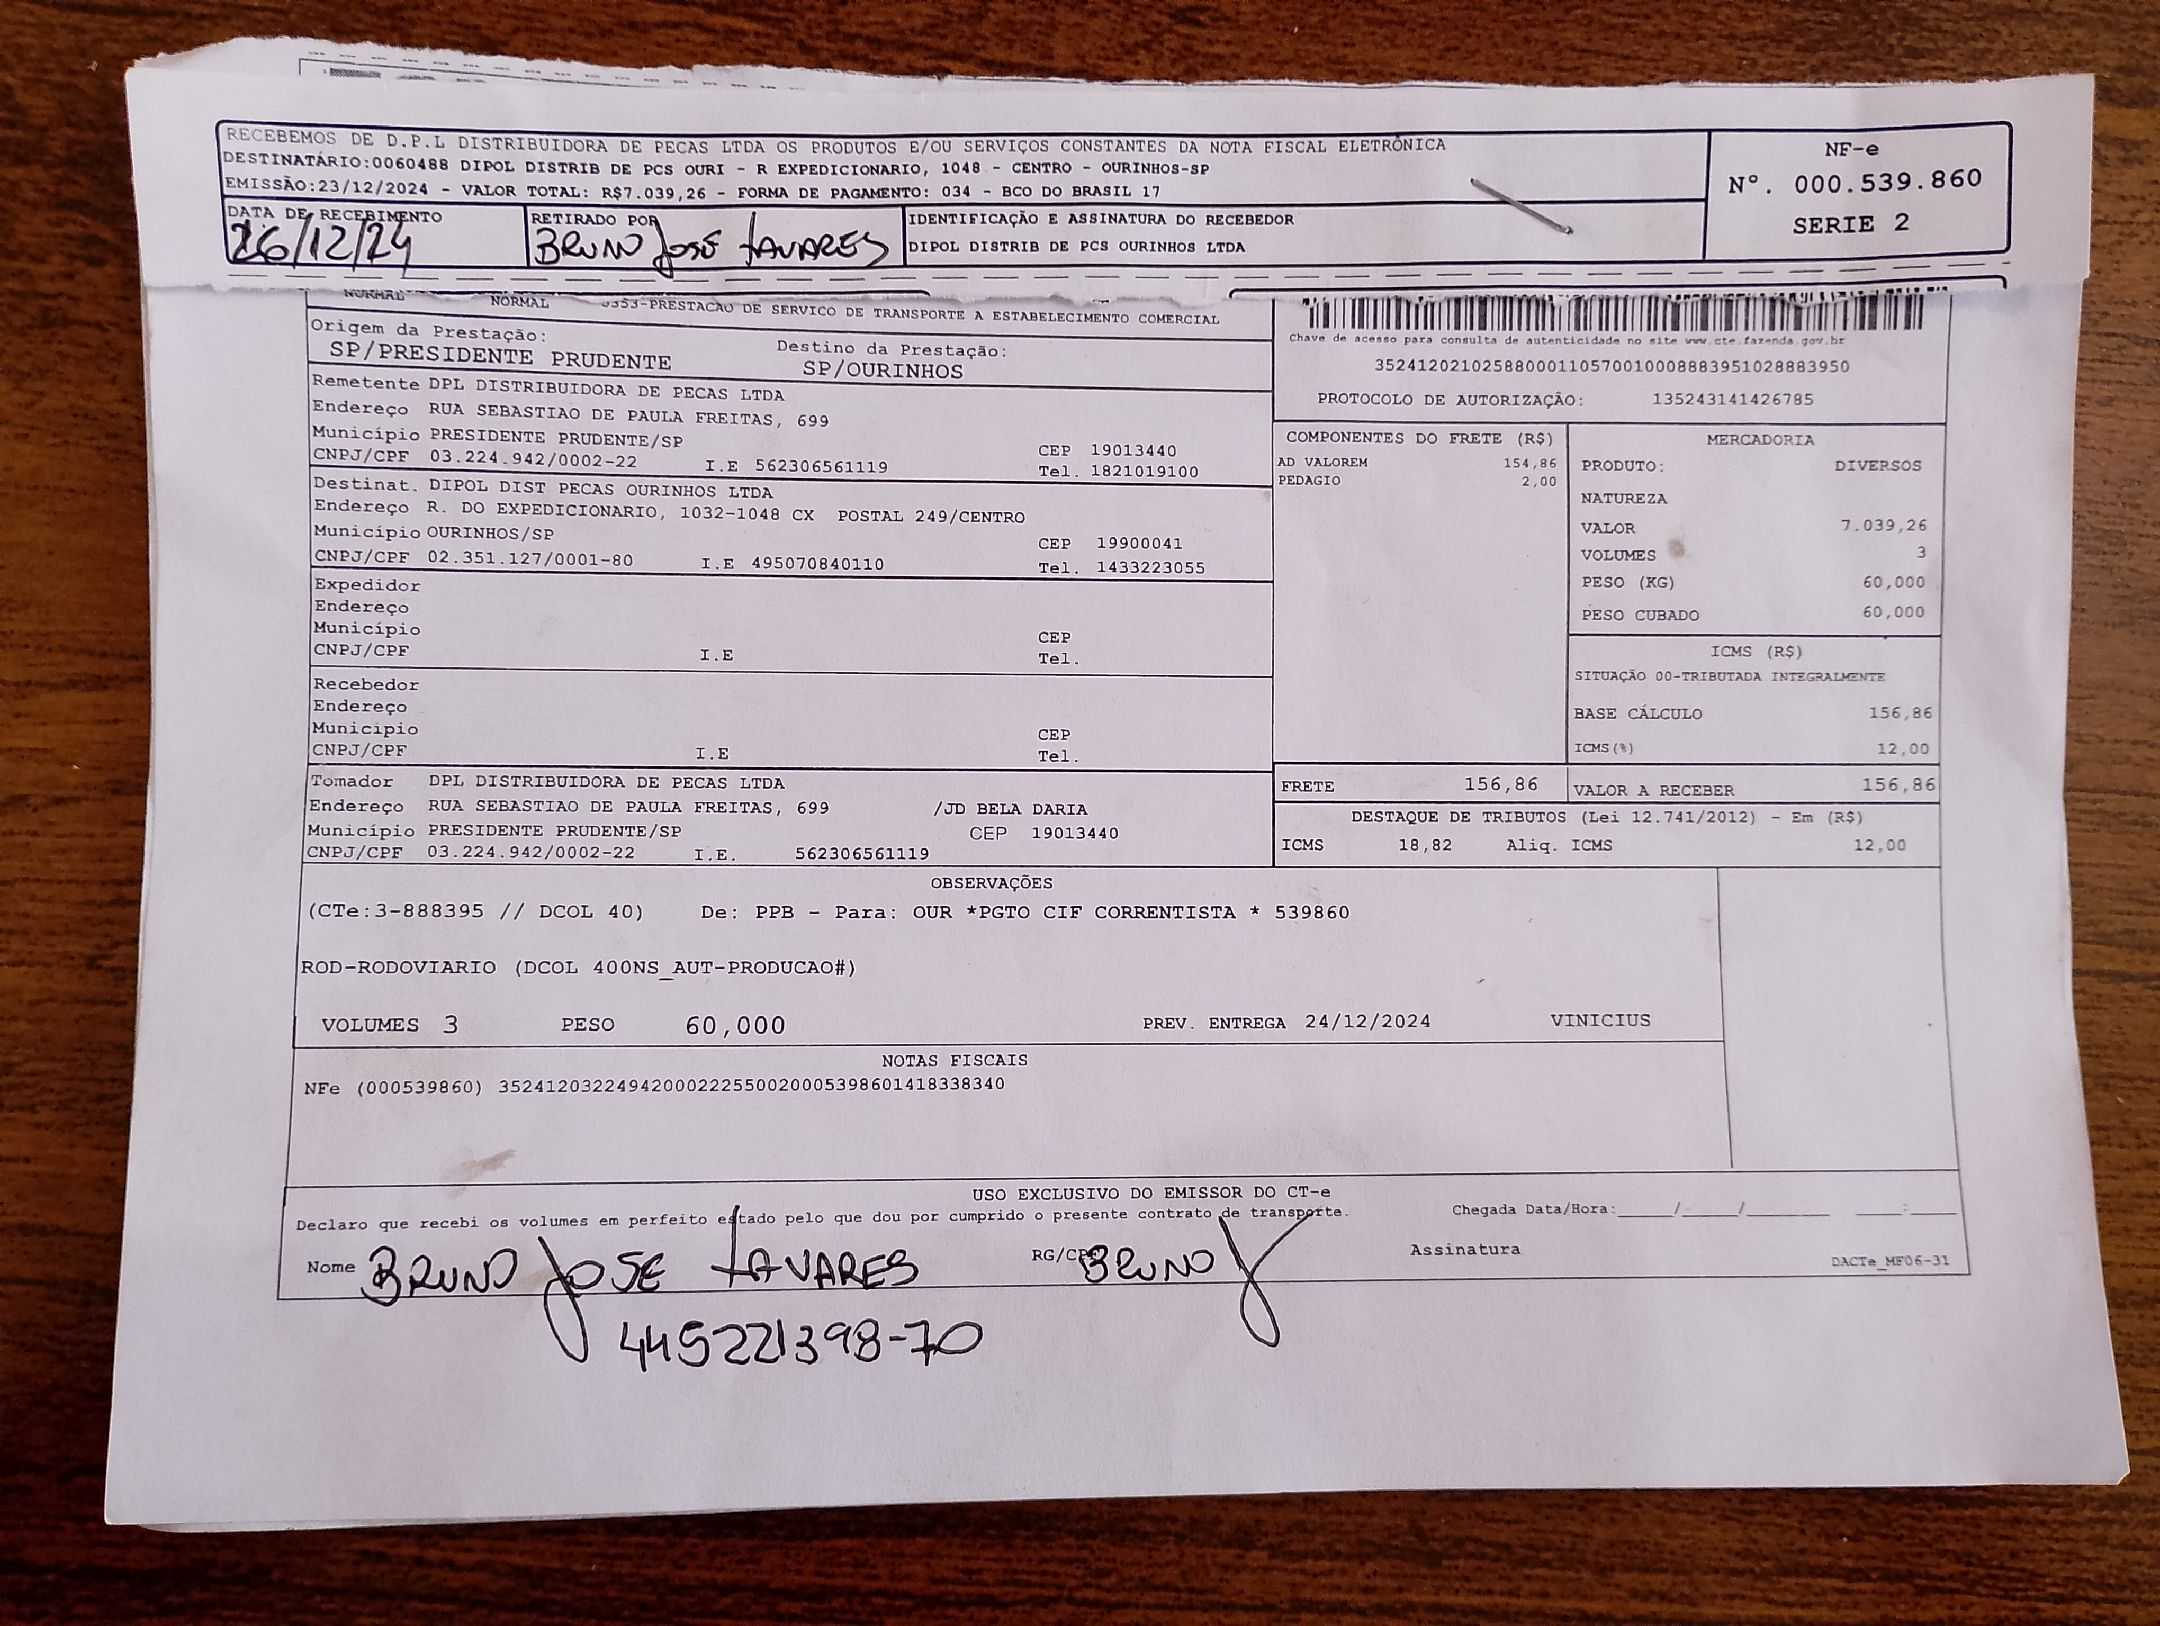 RECEBEMOS DE D.P.L DISTRIBUIDORA DE PECAS LTDA OS PRODUTOS E/OU SERVIÇOS CONSTANTES DA NOTA FISCAL ELETRÔNICA
DESTINATÁRIO:0060488 DIPOL DISTRIB DE PCS OURI - R EXPEDICIONARIO, 1048 - CENTRO - OURINHOS-SP
EMISSÃO:23/12/2024 - VALOR TOTAL: R$7.039,26 - FORMA DE PAGAMENTO: 034 - BCO DO BRASIL 17
NF-e
Nº. 000.539.860
SERIE 2
DATA DE RECEBIMENTO
26/12/24
RETIRADO POR
BRUNO JOSE TAVARES
IDENTIFICAÇÃO E ASSINATURA DO RECEBEDOR
DIPOL DISTRIB DE PCS OURINHOS LTDA
NORMAL NORMAL 5353-PRESTACAO DE SERVICO DE TRANSPORTE A ESTABELECIMENTO COMERCIAL
Origem da Prestação:
SP/PRESIDENTE PRUDENTE
Destino da Prestação:
SP/OURINHOS
Remetente DPL DISTRIBUIDORA DE PECAS LTDA
Endereço RUA SEBASTIAO DE PAULA FREITAS, 699
Município PRESIDENTE PRUDENTE/SP CEP 19013440
CNPJ/CPF 03.224.942/0002-22 I.E 562306561119 Tel. 1821019100
Destinat. DIPOL DIST PECAS OURINHOS LTDA
Endereço R. DO EXPEDICIONARIO, 1032-1048 CX POSTAL 249/CENTRO
Município OURINHOS/SP CEP 19900041
CNPJ/CPF 02.351.127/0001-80 I.E 495070840110 Tel. 1433223055
Expedidor
Endereço
Município CEP
CNPJ/CPF I.E Tel.
Recebedor
Endereço
Município CEP
CNPJ/CPF I.E Tel.
Tomador DPL DISTRIBUIDORA DE PECAS LTDA
Endereço RUA SEBASTIAO DE PAULA FREITAS, 699 /JD BELA DARIA
Município PRESIDENTE PRUDENTE/SP CEP 19013440
CNPJ/CPF 03.224.942/0002-22 I.E. 562306561119
Chave de acesso para consulta de autenticidade no site www.cte.fazenda.gov.br
35241202102588000110570010008883951028883950
PROTOCOLO DE AUTORIZAÇÃO: 135243141426785
COMPONENTES DO FRETE (R$)
AD VALOREM 154,86
PEDAGIO 2,00
MERCADORIA
PRODUTO: DIVERSOS
NATUREZA
VALOR 7.039,26
VOLUMES 3
PESO (KG) 60,000
PESO CUBADO 60,000
ICMS (R$)
SITUAÇÃO 00-TRIBUTADA INTEGRALMENTE
BASE CÁLCULO 156,86
ICMS(%) 12,00
FRETE 156,86 VALOR A RECEBER 156,86
DESTAQUE DE TRIBUTOS (Lei 12.741/2012) - Em (R$)
ICMS 18,82 Aliq. ICMS 12,00
OBSERVAÇÕES
(CTe:3-888395 // DCOL 40) De: PPB - Para: OUR *PGTO CIF CORRENTISTA * 539860
ROD-RODOVIARIO (DCOL 400NS_AUT-PRODUCAO#)
VOLUMES 3 PESO 60,000 PREV. ENTREGA 24/12/2024 VINICIUS
NOTAS FISCAIS
NFe (000539860) 35241203224942000222550020005398601418338340
USO EXCLUSIVO DO EMISSOR DO CT-e
Declaro que recebi os volumes em perfeito estado pelo que dou por cumprido o presente contrato de transporte. Chegada Data/Hora:____/____/______ ___:____
Nome BRUNO JOSE TAVARES RG/CPF BRUNO J Assinatura
DACTe_MF06-31
445221398-70